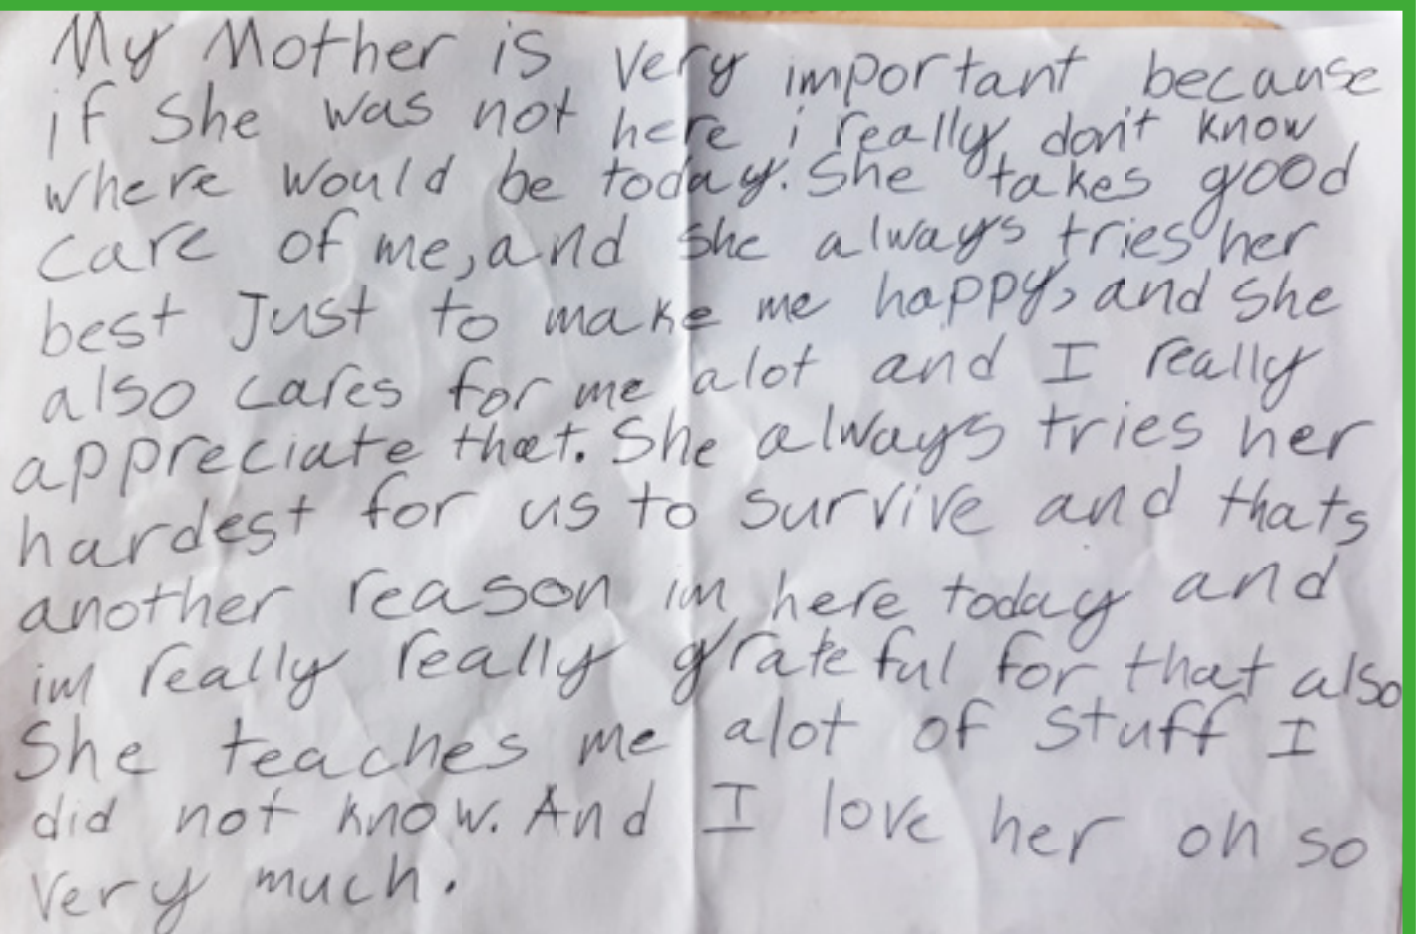 My Mother is very important because
if She was not here i really don't know
where would be today. She takes good
care of me, and she always tries her
best Just to make me happy, and She
also cares for me alot and I really
appreciate that. She always tries her
hardest for us to survive and thats
another reason im here today and
im really really grateful for that also
She teaches me alot of stuff I
did not know. And I love her oh so
very much.